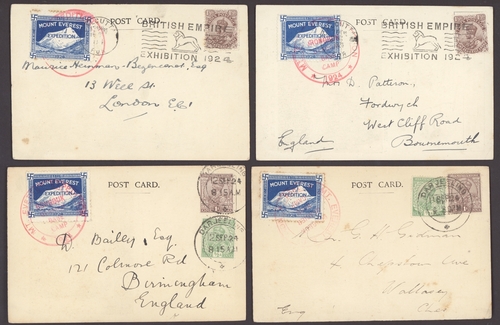 POST CARD.
MOUNT EVEREST
EXPEDITION
BRITISH EMPIRE
EXHIBITION 1924
Esq
13 Well St
London E.C.1
POST CARD.
MOUNT EVEREST
EXPEDITION
BRITISH EMPIRE
EXHIBITION 1924
1924
D. Patterson,
Fordwych
West Cliff Road
England
Bournemouth
POST CARD.
MOUNT EVEREST
EXPEDITION
8.15 AM
DARJEELING
8.15 AM
D. Bailey, Esq
121 Colmore Rd
Birmingham
England
POST CARD.
MOUNT EVEREST
EXPEDITION
DARJEELING
G. H. Godman
4 Chepstow Ave
Wallasey
Eng
Ches